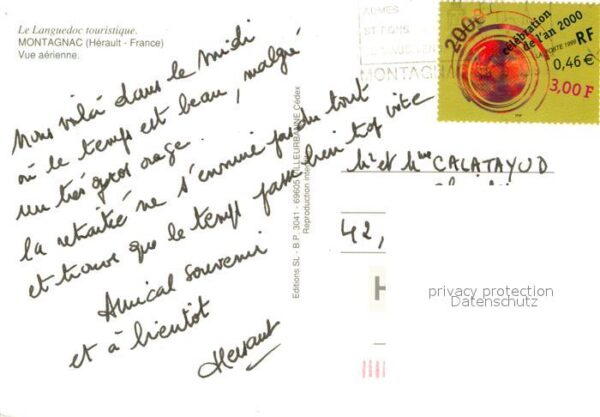 Le Languedoc touristique.
MONTAGNAC (Hérault - France)
Vue aérienne.
Nous voilà dans le midi
où le temps est beau, malgré
un très gros orage.
la retraitée ne s'ennuie pas du tout
et trouve que le temps passe bien trop vite
Amical souvenir
et à bientôt
Editions SL - B.P. 3041 - 69605 VILLEURBANNE Cédex
MONTAGNAC
2000
célébration
de l'an 2000
LA POSTE 1999
RF
0,46 €
3,00 F
Mr et Mme CALATAYUD
42,
H
privacy protection
Datenschutz